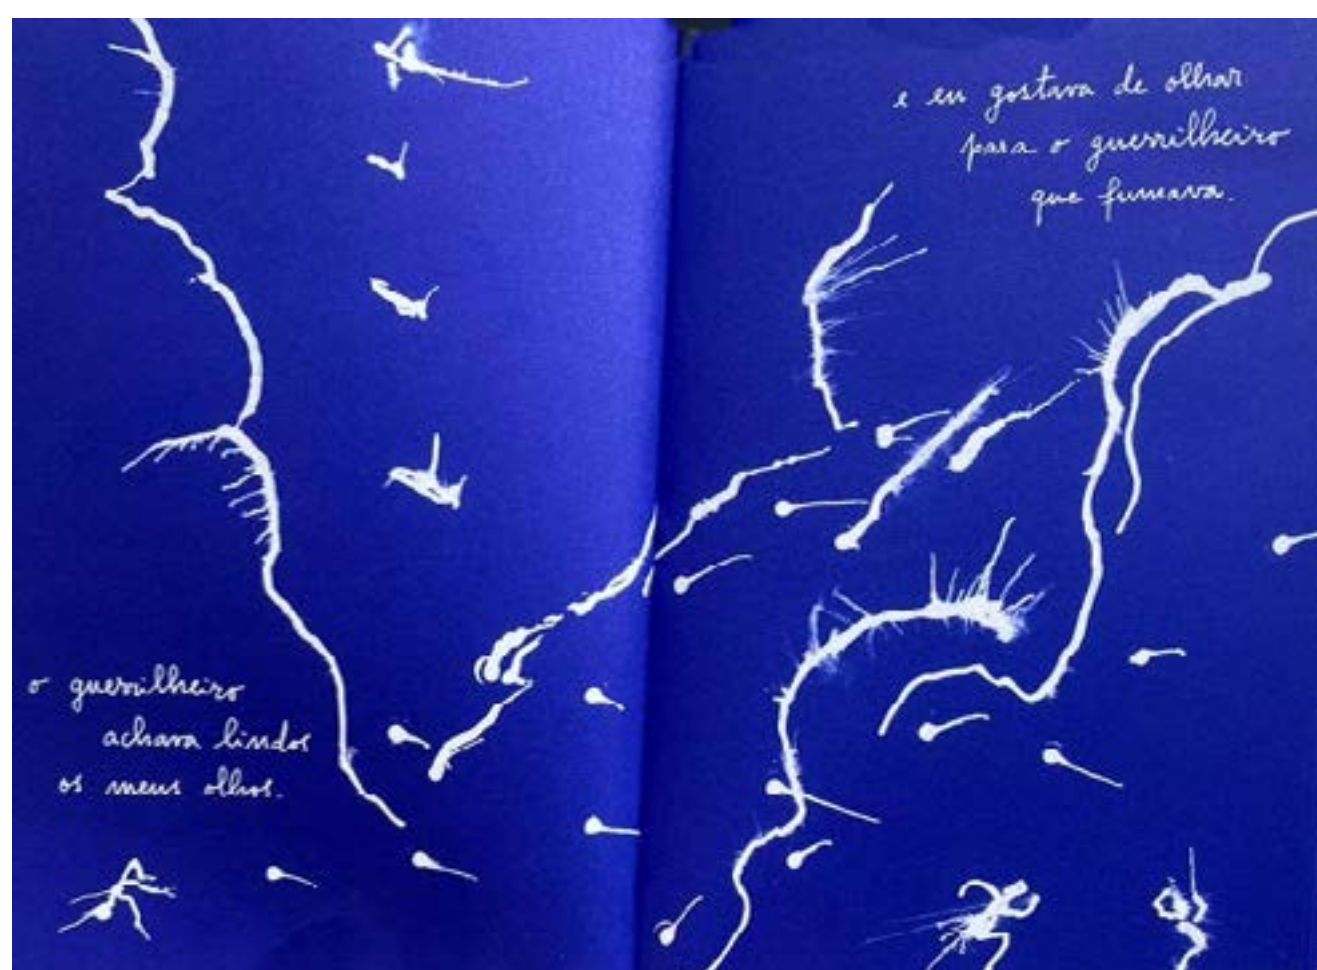 o guerrilheiro
achava lindos
os meus olhos.
e eu gostava de olhar
para o guerrilheiro
que fumava.